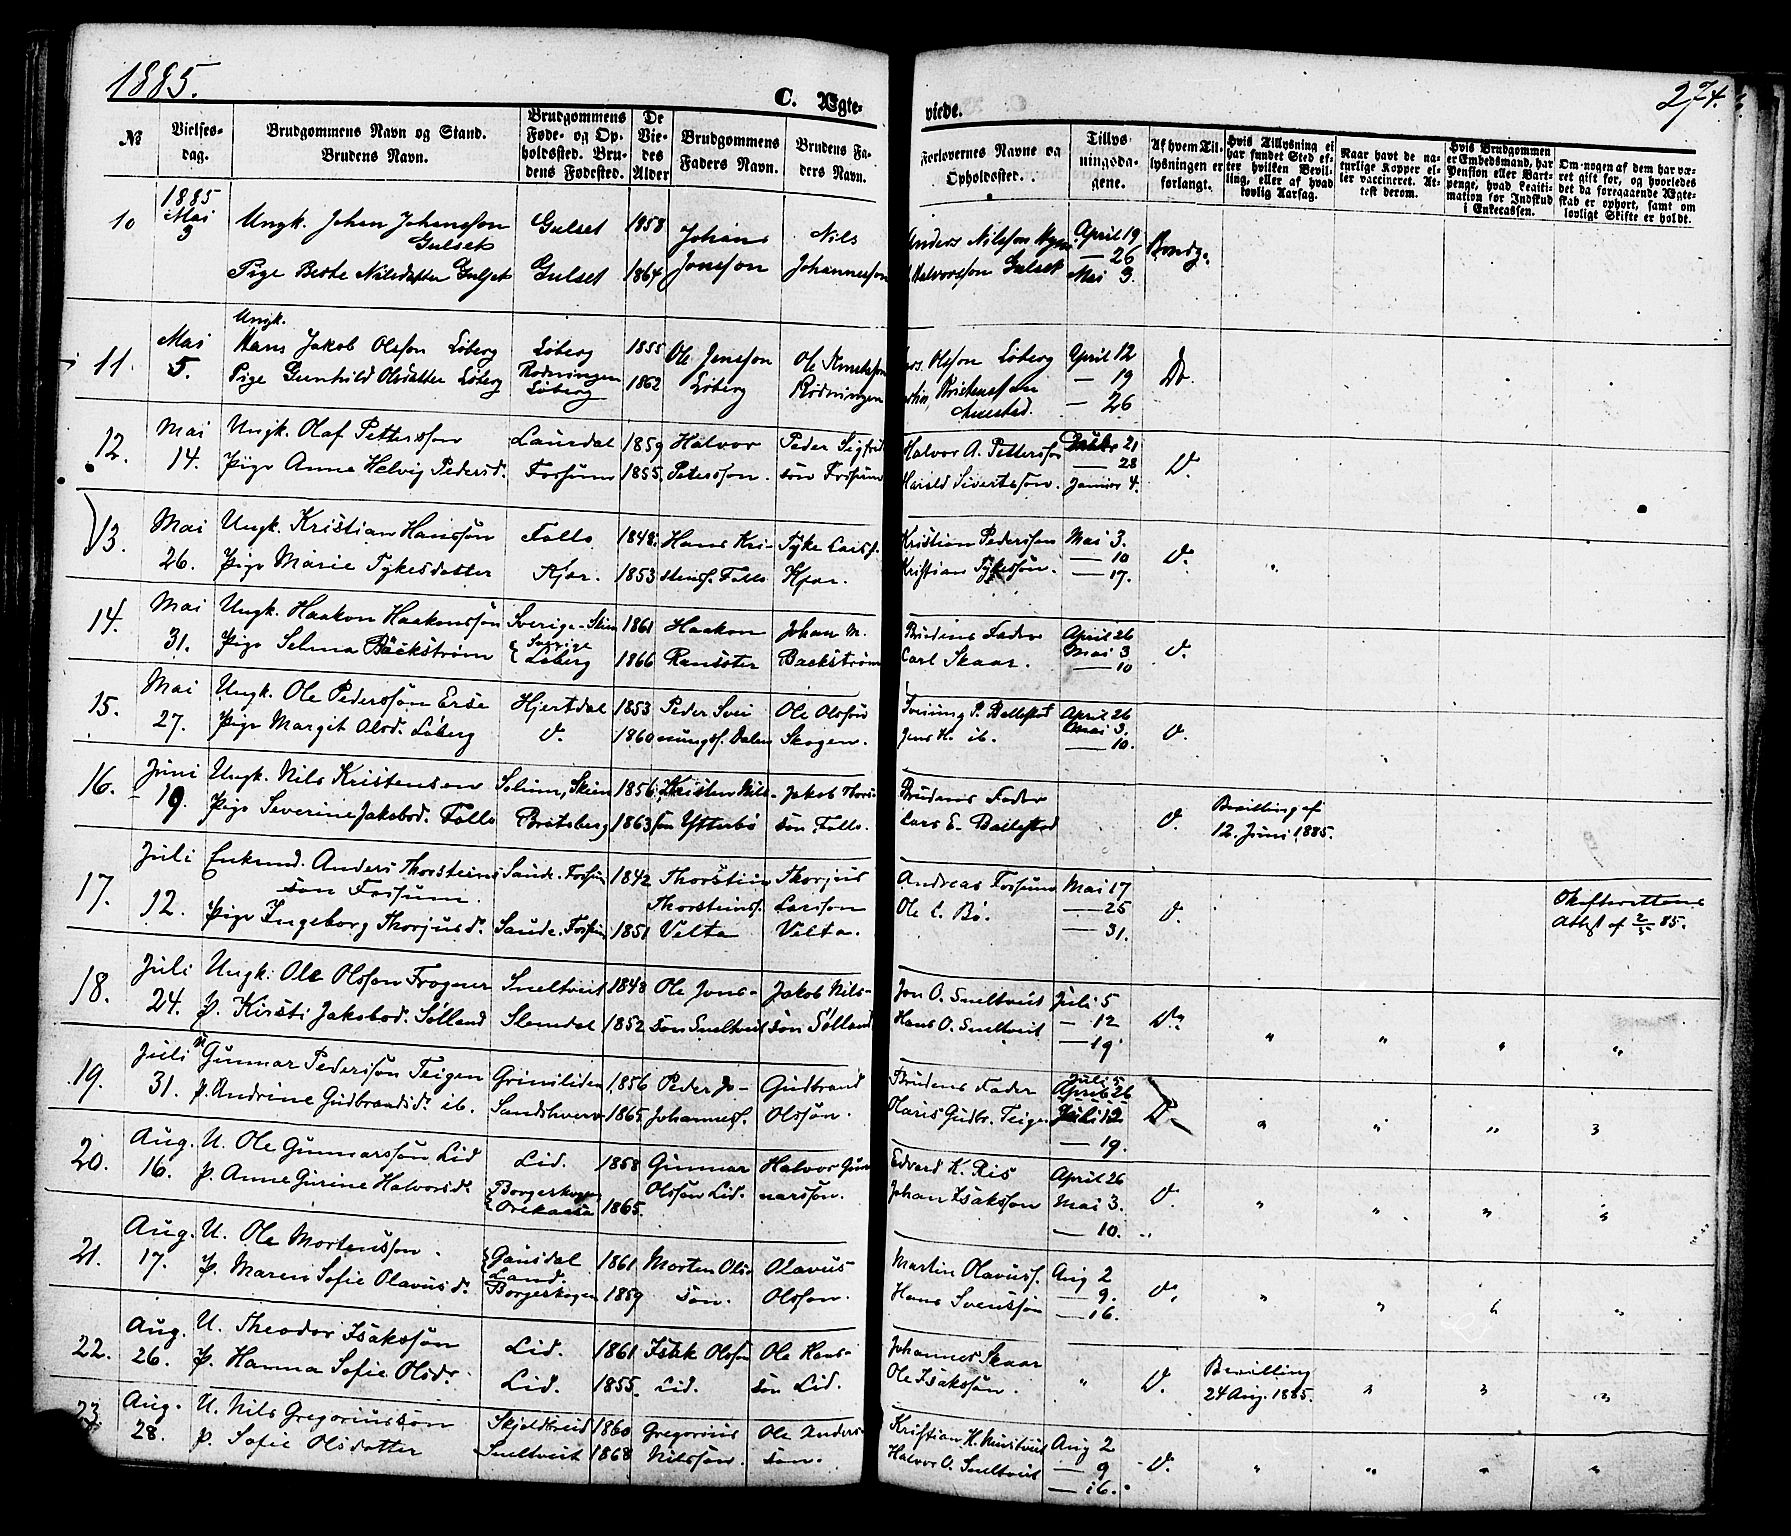 1885.
C. Ægte-
viede.
274.
№
Vielses-
dag.
Brudgommens Navn og Stand.
Brudens Navn.
Brudgommens
Føde- og Op-
holdssted. Bru-
dens Fødested.
De
Vie-
des
Alder
Brudgommens
Faders Navn.
Brudens Fa-
ders Navn.
Forlovernes Navne og
Opholdssted.
Tillys-
ningsda-
gene.
Af hvem Til-
lysningen er
forlangt.
Hvis Tillysning ei
har fundet Sted ef-
ter hvilken Bevil-
ling, eller af hvad
lovlig Aarsag.
Naar havt de na-
turlige Kopper el-
ler vaccineret. At-
test derom.
Hvis Brudgommen
er Embedsmand, har
Pension eller Vart-
penge, hvad Legiti-
mation for Indskud
i Enkecassen.
Om nogen af dem har væ-
ret gift før, og hvorledes
det da foregaaende Ægte-
skab er ophørt, samt om
lovligt Skifte er holdt.
10
1885
Mai
3
Ungk. Johan Johansson
Gulset
Pige Berte Nilsdatter Gulset
Gulset
Gulset
1858
1864
Johans
Jonsson
Nils
Johannesson
Anders Nilsson
Halvorsson Gulset
April 19
— 26
Mai 3.
Brudg.
11.
Mai
5.
Ungk.
Hans Jakob Olsson Løberg
Pige Gunhild Olsdatter Løberg
Løberg
Rødningen
Løberg
1855
1862
Ole Jensson
Løberg
Ole
Rødningen
Olsson Løberg
Kristensson
April 12
— 19
— 26
D.
12.
Mai
14.
Ungk. Olaf Pettersson
Pige Anne Helvig Pedersd.
Laurdal
Fossum
1859
1855.
Halvor
Petersson.
Peder Sigfred
son Fossum
Halvor A. Pettersson
Harald Sivertsson.
21
— 28
Januar 4.
D.
13.
Mai
26.
Ungk. Kristian Hansson
Pige Marie Tykesdatter
Folls
Kjær.
1848.
1853
Hans Kri-
stens. Folls
Tyke Lars.
Kjær.
Kristian Pedersson
Kristian Tykesson.
Mai 3.
— 10
— 17.
D.
14.
Mai
31.
Ungk. Haakon Haakonsson
Pige Selma Bäckstrøm
Sverige-Skien
Sverige
Løberg
1861
1866
Haakon
Ransäter
Johan M.
Backstrøm
Brudens Fader
Carl Skaar.
April 26
Mai 3
— 10
D.
15.
Mai
27.
Ungk. Ole Pedersson Erse
Pige Margit Olsd. Løberg
Hjertdal
D.
1853
1860
Peder Svei
nungs. Dalen
Ole Olsson
Skogen.
Sveinung P. Ballestad
Jens H. ib.
April 26
Mai 3.
— 10.
D.
16.
Juni
19.
Ungk. Nils Kristensen
Pige Severine Jakobsd. Folls
Solum, Skien
Bratsberg
1856
1863
Kristen Nils-
søn Ytterbø
Jakob Thors-
søn Folls.
Brudens Fader
Lars E. Ballestad
D.
Bevilling af
12. Juni 1885.
17.
Juli
12.
Enkemd. Anders Thorsteins
son Fossum.
Pige Ingeborg Thorjusd.
Saude. Fossum
Saude. Fossum
1842
1851
Thorstein
Thorsteins.
Velta
Thorjus
Larsson
Velta.
Andreas Fossum
Ole C. Bø.
Mai 17
— 25
— 31.
D.
Skifterettens
Attest af 2/5 85.
18.
Juli
24.
Ungk. Ole Olsson Frogner
P. Kirsti Jakobsd. Sølland
Sneltveit
Slemdal
1848
1852
Ole Jons-
søn Sneltveit
Jakob Nils-
søn Sølland
Jon O. Sneltveit
Hans O. Sneltveit
Juli 5
— 12
— 19.
D.
"
"
"
"
19.
Juli
31.
U. Gunnar Pedersson Teigen
P. Andrine Gudbrandsd. ib.
Grinilien
Sandshverv
1856
1865.
Peder Jo-
Johannes.
Gudbrand
Olsson.
Brudens Fader
Olaus Gudbr. Teigen
Juli 5
April 26
Juli 12
— 19.
D.
"
"
"
"
20.
Aug.
16.
U. Ole Gunnarsson Lid
P. Anne Gurine Halvorsd.
Lid.
Borgeskogen
1858
1865.
Gunnar
Olsson Lid.
Halvor Gun
narsson.
Edvard K. Ris
Johan Isaksson
April 26
Mai 3.
— 10.
D.
"
"
"
"
21.
Aug.
17.
U. Ole Mortensson.
P. Maren Sofie Olavusd.
Gausdal
Land.
Borgeskogen
1861
1859
Morten Ols-
søn.
Olavus
Olsson.
Martin Olavuss.
Hans Svensson
Aug 2
— 9.
— 16.
D.
"
"
"
"
22.
Aug.
26.
U. Theodor Isaksson
P. Hanna Sofie Olsdr.
Lid.
Lid.
1861
1855.
Isak Olsson
Lid.
Ole Hans-
søn Lid.
Johannes Skaar
Ole Isaksson.
"
D.
Bevilling
24 Aug. 1885.
"
"
"
23
Aug.
28.
U. Nils Gregoriusson
P. Sofie Olsdatter
Skjeldbreid
Sneltveit
1860
1868
Gregorius
Nilsson.
Ole Anders-
son.
Kristian H.
Halvor O. Sneltveit
Aug 2
— 9
— 16.
D.
"
"
"
"